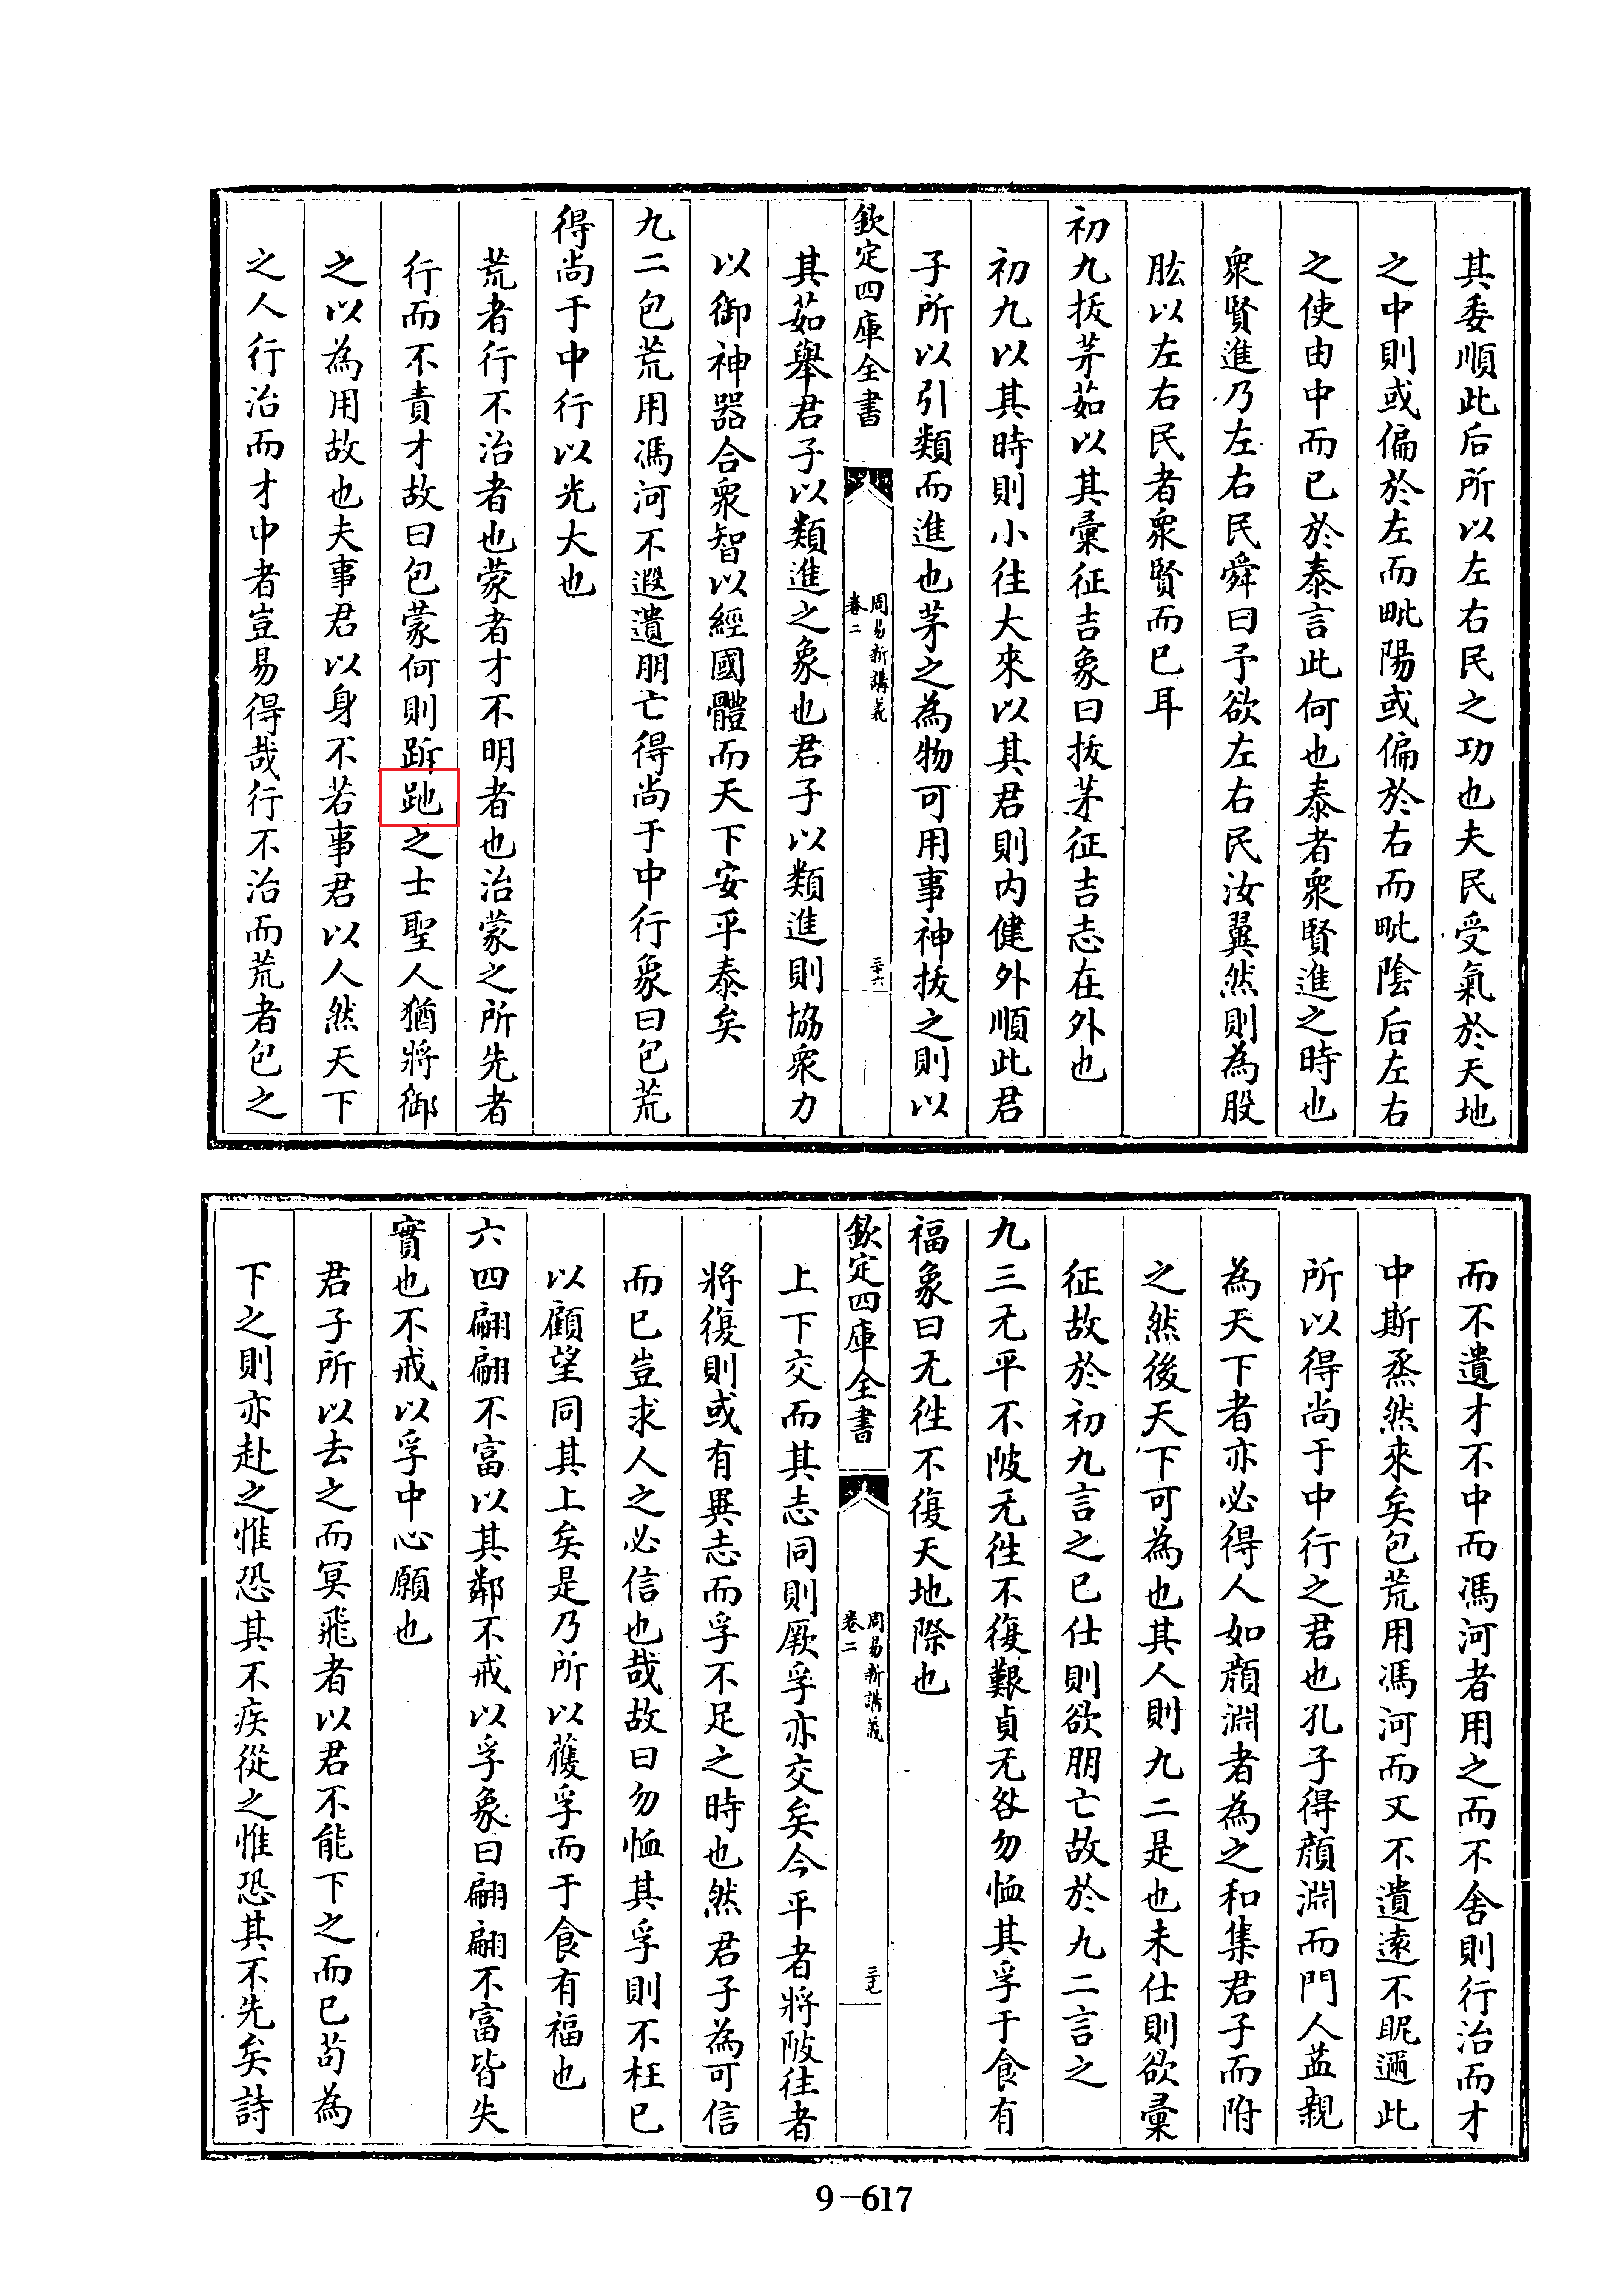 其委順此后所以左右民之功也夫民受氣於天地
之中則或偏於左而毗陽或偏於右而毗陰后左右
之使由中而已於泰言此何也泰者衆賢進之時也
衆賢進乃左右民舜曰予欲左右民汝翼然則為股
肱以左右民者衆賢而已耳
初九拔茅茹以其彙征吉象曰拔茅征吉志在外也
初九以其時則小往大來以其君則内健外順此君
子所以引類而進也茅之為物可用事神拔之則以
欽定四庫全書
周易新講義
卷二
三十六
其茹舉君子以類進之象也君子以類進則協衆力
以御神器合衆智以經國體而天下安乎泰矣
九二包荒用馮河不遐遺朋亡得尚于中行象曰包荒
得尚于中行以光大也
荒者行不治者也蒙者才不明者也治蒙之所先者
行而不責才故曰包蒙何則跅跑之士聖人猶將御
之以為用故也夫事君以身不若事君以人然天下
之人行治而才中者豈易得哉行不治而荒者包之
而不遺才不中而馮河者用之而不舍則行治而才
中斯烝然來矣包荒用馮河而又不遺遠不眤邇此
所以得尚于中行之君也孔子得顔淵而門人益親
為天下者亦必得人如顔淵者為之和集君子而附
之然後天下可為也其人則九二是也未仕則欲彙
征故於初九言之已仕則欲朋亡故於九二言之
九三无平不陂无徃不復艱貞无咎勿恤其孚于食有
福象曰无徃不復天地際也
欽定四庫全書
周易新講義
卷二
三十七
上下交而其志同則厥孚亦交矣今平者將陂徃者
將復則或有異志而孚不足之時也然君子為可信
而已豈求人之必信也哉故曰勿恤其孚則不枉已
以顧望同其上矣是乃所以獲孚而于食有福也
六四翩翩不富以其鄰不戒以孚象曰翩翩不富皆失
實也不戒以孚中心願也
君子所以去之而冥飛者以君不能下之而已苟為
下之則亦赴之惟恐其不疾從之惟恐其不先矣詩
9-617